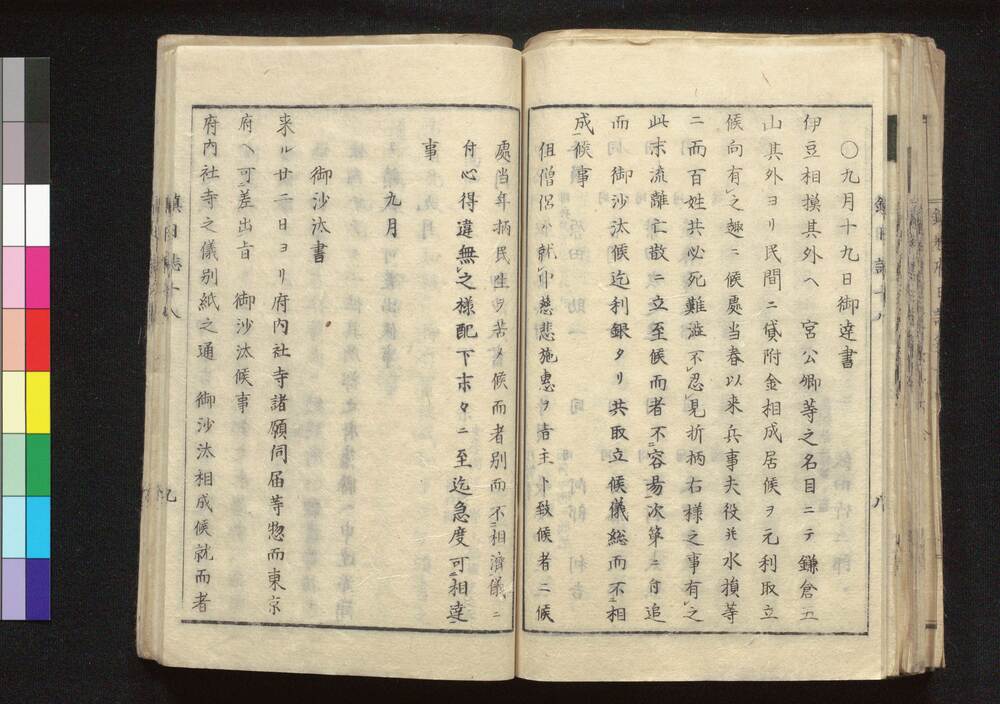 〇九月十九日御達書
伊豆相摸其外ヘ　宮公卿等之名目ニテ鎌倉江
山其外ヨリ民間ニ貸附金相成居候ヲ元利取立
候向有レ之趣ニ候處当春以来兵事夫役並水損等
ニ而百姓共必死難澁不レ忍レ見折柄右様之事有レ之
此末流離亡散ニ立至候而者不二容易一次第ニ付追
而　御沙汰候迄利銀タリ共取立候儀総而不二相
成一候事
但僧侶ハ就レ中慈悲施惠ヲ旨主ト致候者ニ候
處当年柄民生ヲ苦メ候而者別而不二相濟一儀ニ
付心得違無レ之様配下末々ニ至迄急度可二相達
事
九月
御沙汰書
来ル廿一日ヨリ府内社寺諸願伺届等惣而東京
府ヘ可二差出一旨　御沙汰候事
府内社寺之儀別紙之通　御沙汰相成候就而者
鎮日誌十八
八
鎮日誌十八
九